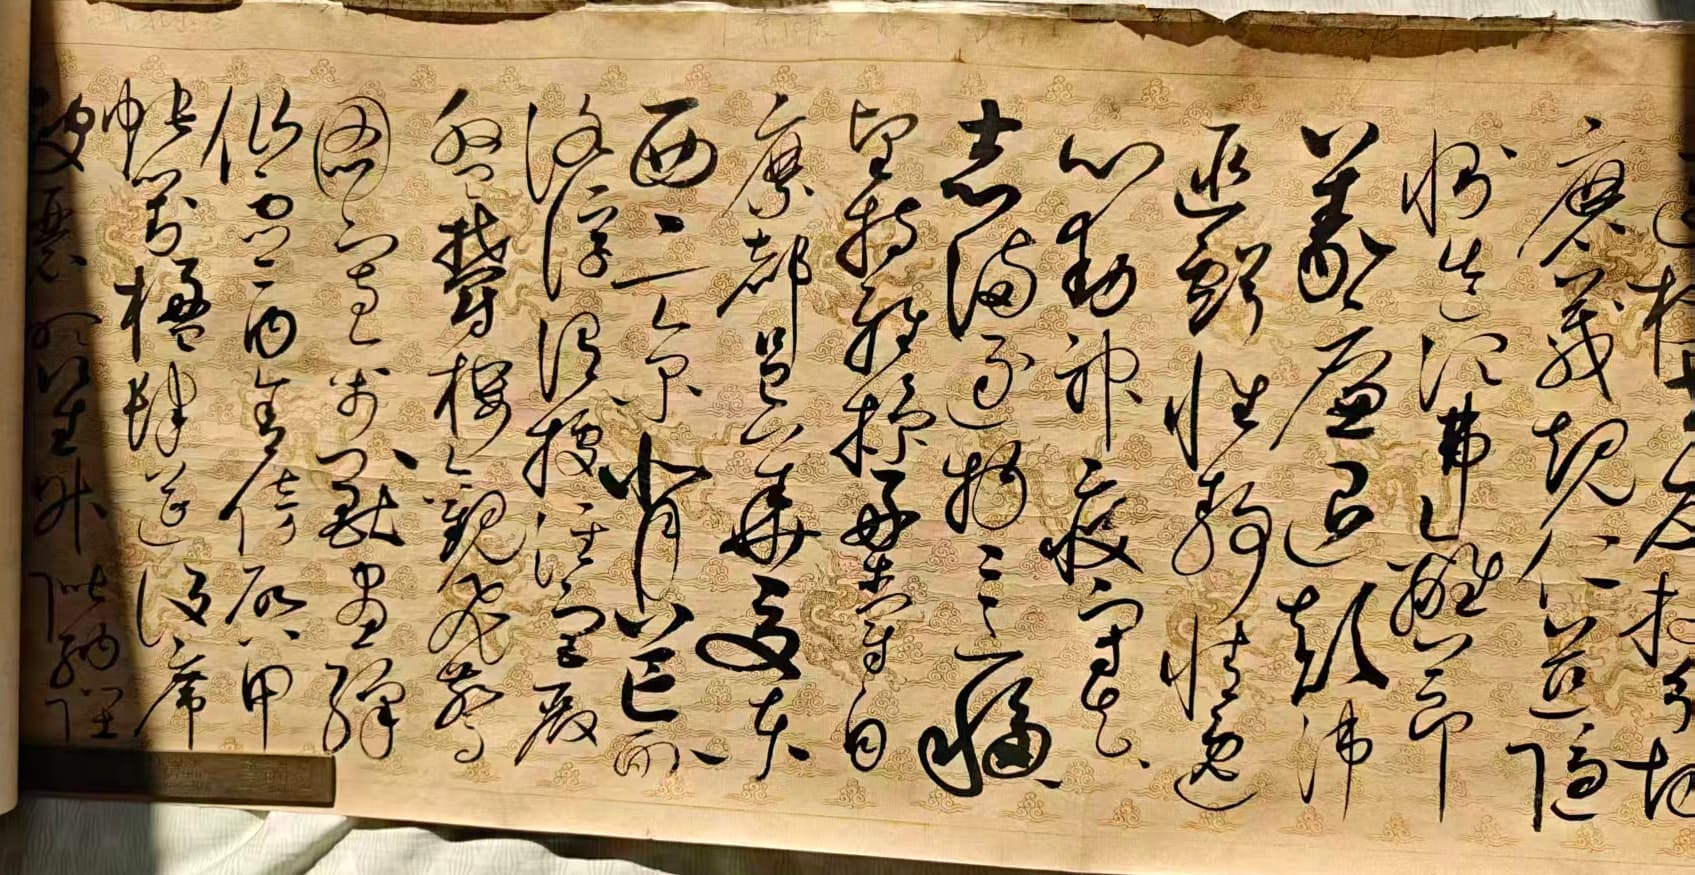 枝交友投分切
磨箴規仁慈隱
惻造次弗離節
義廉退顛沛
匪虧性靜情逸
心動神疲守真
志滿逐物意移
堅持雅操好爵自
縻都邑華夏東
西二京背芒面
洛浮渭據涇宮殿
盤鬱樓觀飛驚
圖寫禽獸畫彩
仙靈丙舍傍啟甲
帳對楹肆筵設席
鼓瑟吹笙升階納陛